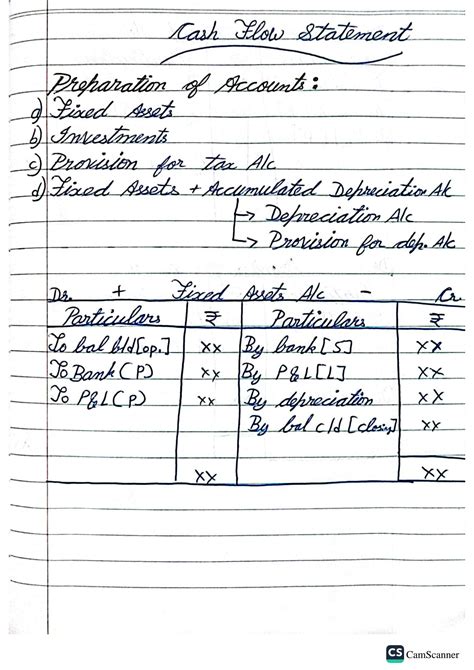 Cash Flow Statement
Preparation of Accounts :
a) Fixed Assets
b) Investments
c) Provision for tax A/c
d) Fixed Assets + Accumulated Depreciation A/c
↳ Depreciation A/c
↳ Provision for dep. A/c
Dr. + Fixed Assets A/c - Cr.
Particulars ₹ Particulars ₹
To bal b/d [op.] xx By bank [S] xx
To Bank (P) xx By P&L [L] xx
To P&L (P) xx By depreciation xx
By bal c/d [closing] xx
xx xx
CS CamScanner